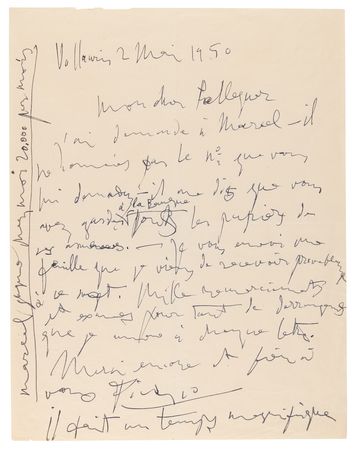 Vallauris 2 Mai 1950
mon cher Pellequer
j'ai demandé à Marcel – il
le n° que vous
lui – il me dit que vous
avez gardé à la banque tous les papiers de
ces – je vous envoie une
feuille que je viens de recevoir
à ce sujet. Mille remerciements
et excuses pour tant de
que je à chaque lettre.
Merci encore et bien à
vous Picasso
il fait un temps magnifique
marcel par mois 20.000 par mois